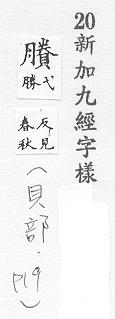 20新加九經字樣
賸
弋
勝
反見
春秋
(貝部.P19)